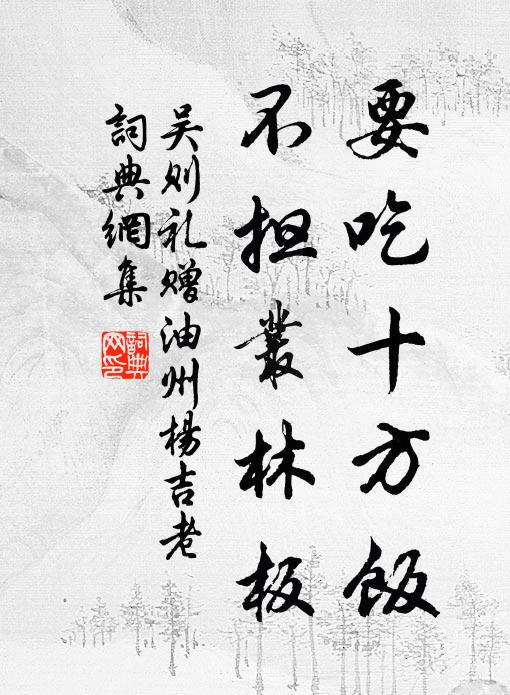 要吃十方飯
不担叢林板
吴则礼赠油州楊吉老
詞典網集
詞典網印